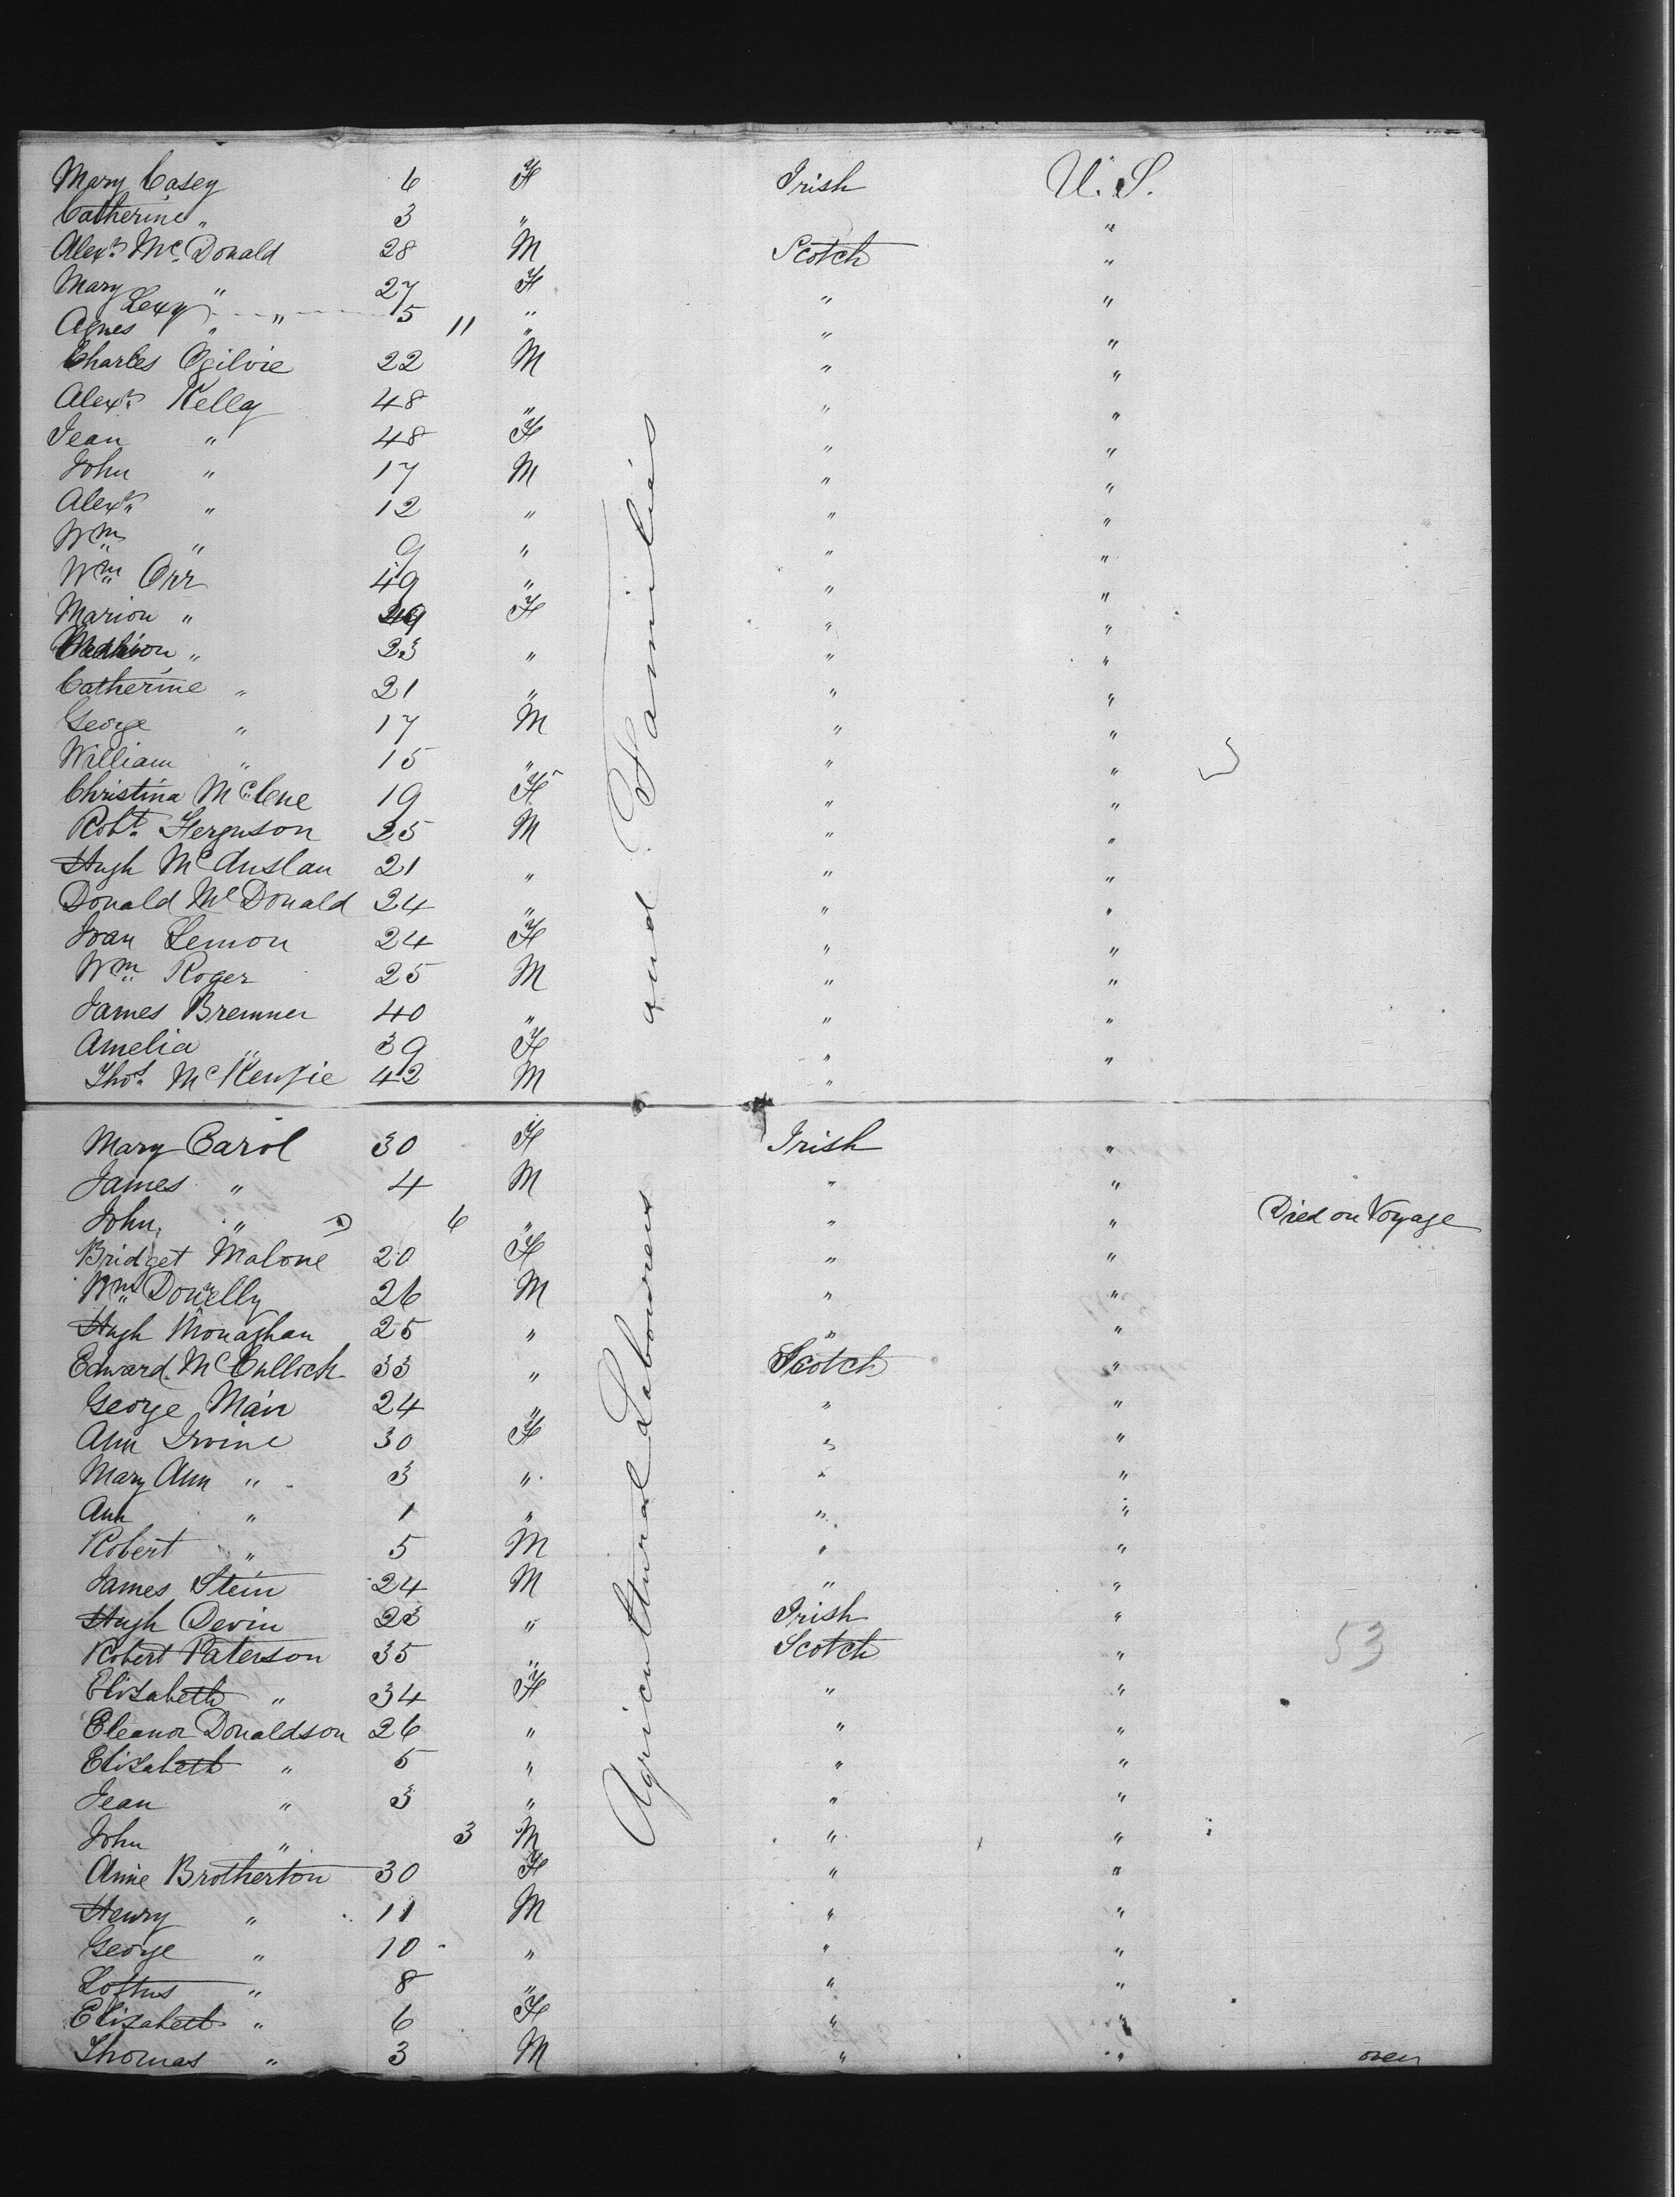 Mary Casey 6 F Irish U.S.
Catherine " 3 " "
Alexr. Mc. Donald 28 M Scotch "
Mary " 27 F " "
Lexy " 5 "
Agnes " 11 " " "
Charles Ogilvie 22 M " "
Alexr. Kelly 48 " " "
Jean " 48 F " "
John " 17 M " "
Alexr. " 12 " " "
Wm " 9 " " "
Wm Orr 49 " " "
Marion " 49 F " "
" 23 " " "
Catherine " 21 " " "
George " 17 M " "
William " 15 " " "
Christina McCue 19 F " "
Robt. Ferguson 25 M " "
Hugh McAuslan 21 " " "
Donald McDonald 24 " " "
Joan Lemon 24 F " "
Wm Roger 25 M " "
James Bremner 40 " " "
Amelia " 39 F " "
Thos. McKenzie 42 M "
Mary Carol 30 F Irish "
James " 4 M " "
John " D 6 " " " Died on Voyage
Bridget Malone 20 F " "
Wm Donelly 26 M " "
Hugh Monaghan 25 " " "
Edward McCulloch 33 " Scotch "
George Mair 24 " " "
Ann Irvine 30 F " "
Mary Ann " 3 " " "
Ann " 1 " " "
Robert " 5 M " "
James Stein 24 M " "
Hugh Devin 23 " Irish "
Robert Paterson 35 " Scotch " 53
Elizabeth " 34 F " "
Eleanor Donaldson 26 " " "
Elizabeth " 5 " " "
Jean " 3 " " "
John " 3 M " "
Anne Brotherton 30 F " "
Henry " 11 M " "
George " 10 " " "
Loftus " 8 " " "
Elizabeth " 6 F " "
Thomas " 3 M " " over
Agricultural Labourers and Families